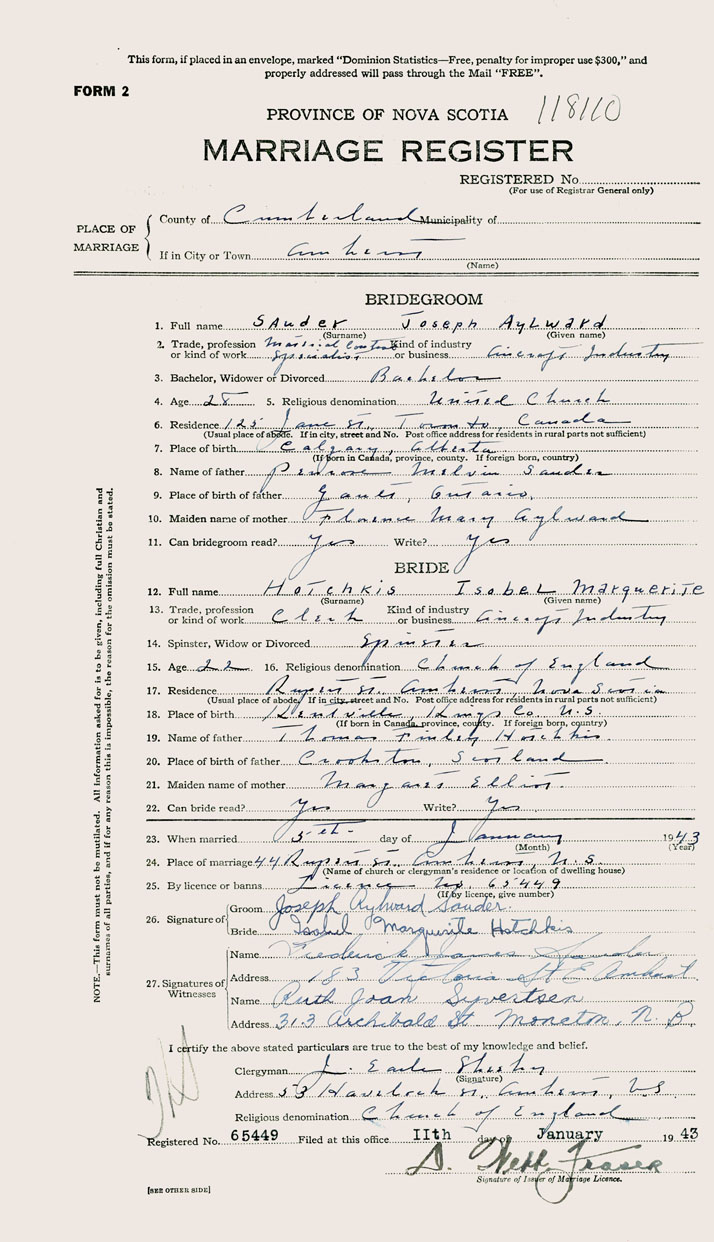 This form, if placed in an envelope, marked “Dominion Statistics—Free, penalty for improper use $300,” and
properly addressed will pass through the Mail “FREE”.
FORM 2
PROVINCE OF NOVA SCOTIA 118110
MARRIAGE REGISTER
REGISTERED No.
(For use of Registrar General only)
PLACE OF MARRIAGE
County of Cumberland Municipality of
If in City or Town Amherst
(Name)
BRIDEGROOM
1. Full name Sauder Joseph Aylward
(Surname) (Given name)
2. Trade, profession or kind of work Material Control Specialist Kind of industry or business Aircraft Industry
3. Bachelor, Widower or Divorced Bachelor
4. Age 28 5. Religious denomination United Church
6. Residence 125 Jane St., Toronto, Canada
(Usual place of abode. If in city, street and No. Post office address for residents in rural parts not sufficient)
7. Place of birth Calgary, Alberta
(If born in Canada, province, county. If foreign born, country)
8. Name of father Melvin Sauder
9. Place of birth of father Ontario,
10. Maiden name of mother Florence Mary Aylward
11. Can bridegroom read? Yes Write? Yes
BRIDE
12. Full name Hotchkis Isobel Marguerite
(Surname) (Given name)
13. Trade, profession or kind of work Clerk Kind of industry or business Aircraft Industry
14. Spinster, Widow or Divorced Spinster
15. Age 22 16. Religious denomination Church of England
17. Residence Rupert St. Amherst, Nova Scotia
(Usual place of abode. If in city, street and No. Post office address for residents in rural parts not sufficient)
18. Place of birth Kentville, Kings Co. N.S.
(If born in Canada, province, county. If foreign born, country)
19. Name of father Thomas Finley Hotchkis
20. Place of birth of father Crookston, Scotland
21. Maiden name of mother Margaret Elliot.
22. Can bride read? Yes Write? Yes
23. When married 5th day of January 1943
(Month) (Year)
24. Place of marriage 44 Rupert St., Amherst, N.S.
(Name of church or clergyman's residence or location of dwelling house)
25. By licence or banns Licence No. 65449
(If by licence, give number)
26. Signature of
Groom Joseph Aylward Sauder.
Bride Isobel Marguerite Hotchkis
27. Signatures of Witnesses
Name Frederick James Sauder
Address 183 Victoria St E Amherst
Name Ruth Joan Syvertsen
Address 313 Archibald St Moncton, N.B
I certify the above stated particulars are true to the best of my knowledge and belief.
Clergyman J. Earle
(Signature)
Address 53 Havelock St., Amherst, N.S
Religious denomination Church of England
Registered No. 65449 Filed at this office IIth day of January 1943
D. Fraser
Signature of Issuer of Marriage Licence.
[SEE OTHER SIDE]
NOTE.—This form must not be mutilated. All information asked for is to be given, including full Christian and
surnames of all parties, and if for any reason this is impossible, the reason for the omission must be stated.